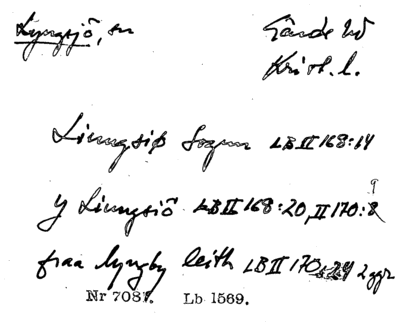 Lyngsjö, sn Gärds hd
Krist. l.
Liungsiø Sognn LB II 168:14
y Liungsiö LB II 168:20, II 170:8
9
fraa lyngby leith LB II 170: 2 ggr
Nr 7087. Lb 1569.